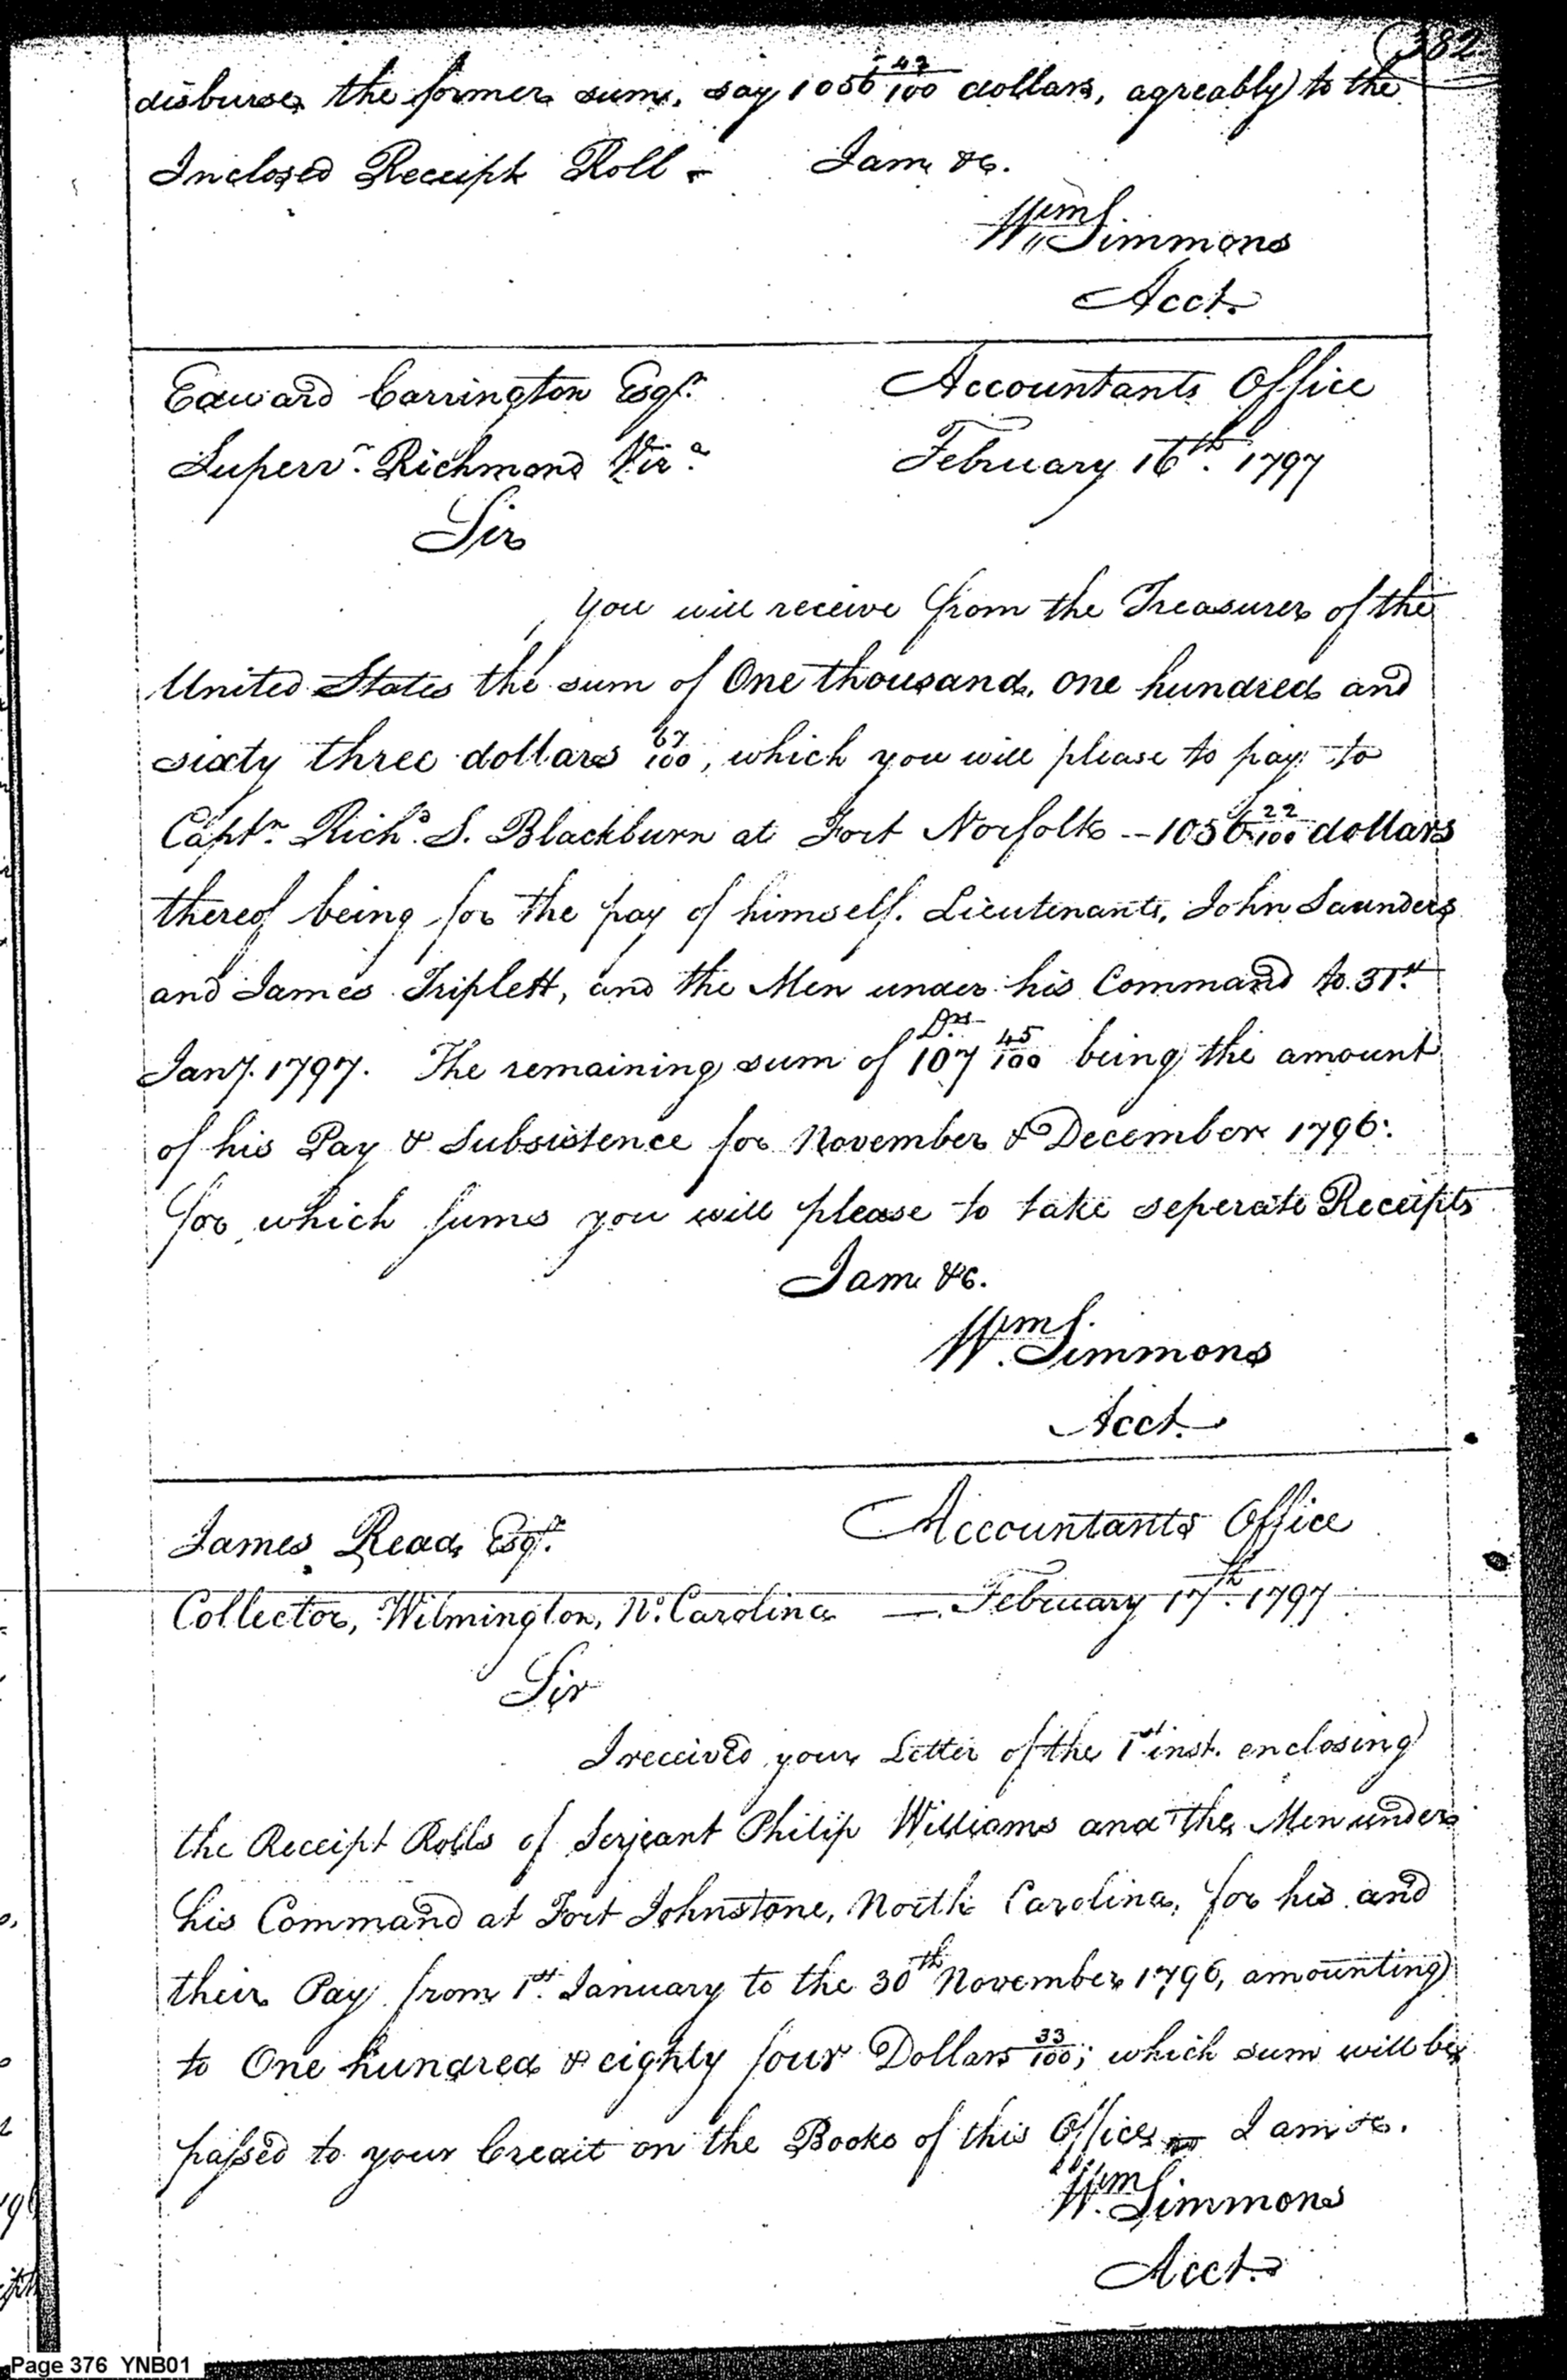 382
disburse the former sum, say 1056 42/100 dollars, agreably to the
Inclosed Receipt Roll - I am &c.
Wm Simmons
Acct.
Edward Carrington Esqr. Accountants Office
Superv.r Richmond Vir.a February 16th. 1797
Sir
You will receive from the Treasurer of the
United States the sum of One thousand, one hundred and
sixty three dollars 67/100, which you will please to pay to
Captn. Richd. S. Blackburn at Fort Norfolk -- 1056 22/100 dollars
thereof being for the pay of himself. Lieutenants, John Saunders
and James Triplett, and the Men under his Command to 31st.
Jany. 1797. The remaining sum of Drs. 107 45/100 being the amount
of his Pay & Subsistence for November & December 1796.
for which sums you will please to take seperate Receipts
I am &c.
Wm. Simmons
Acct.
James Read, Esqr. Accountants Office
Collector, Wilmington, No. Carolina — February 17th. 1797
Sir
I received your Letter of the 1st inst. enclosing
the Receipt Rolls of Serjeant Philip Williams and the Men under
his Command at Fort Johnstone, North Carolina, for his and
their Pay from 1st. January to the 30th November 1796, amounting
to One hundred & eighty four Dollars 33/100; which sum will be
passed to your Credit on the Books of this Office I am &c.
Wm. Simmons
Acct.
Page 376 YNB01